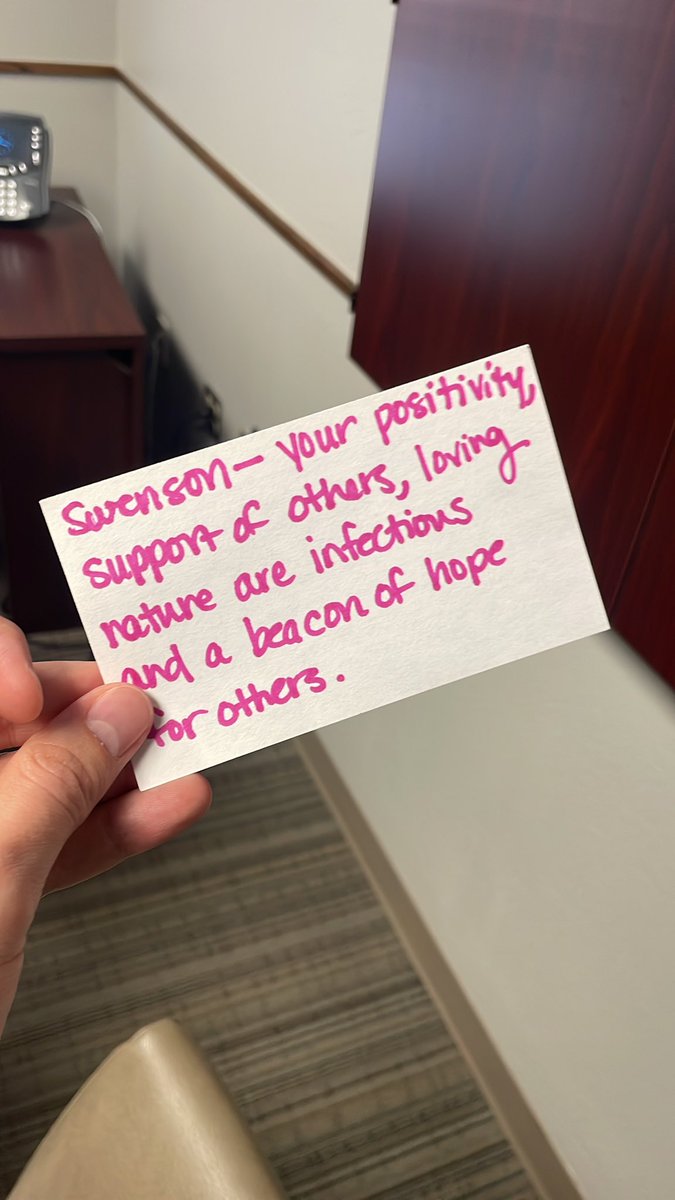 Swenson— your positivity,
support of others, loving
nature are infectious
and a beacon of hope
for others.